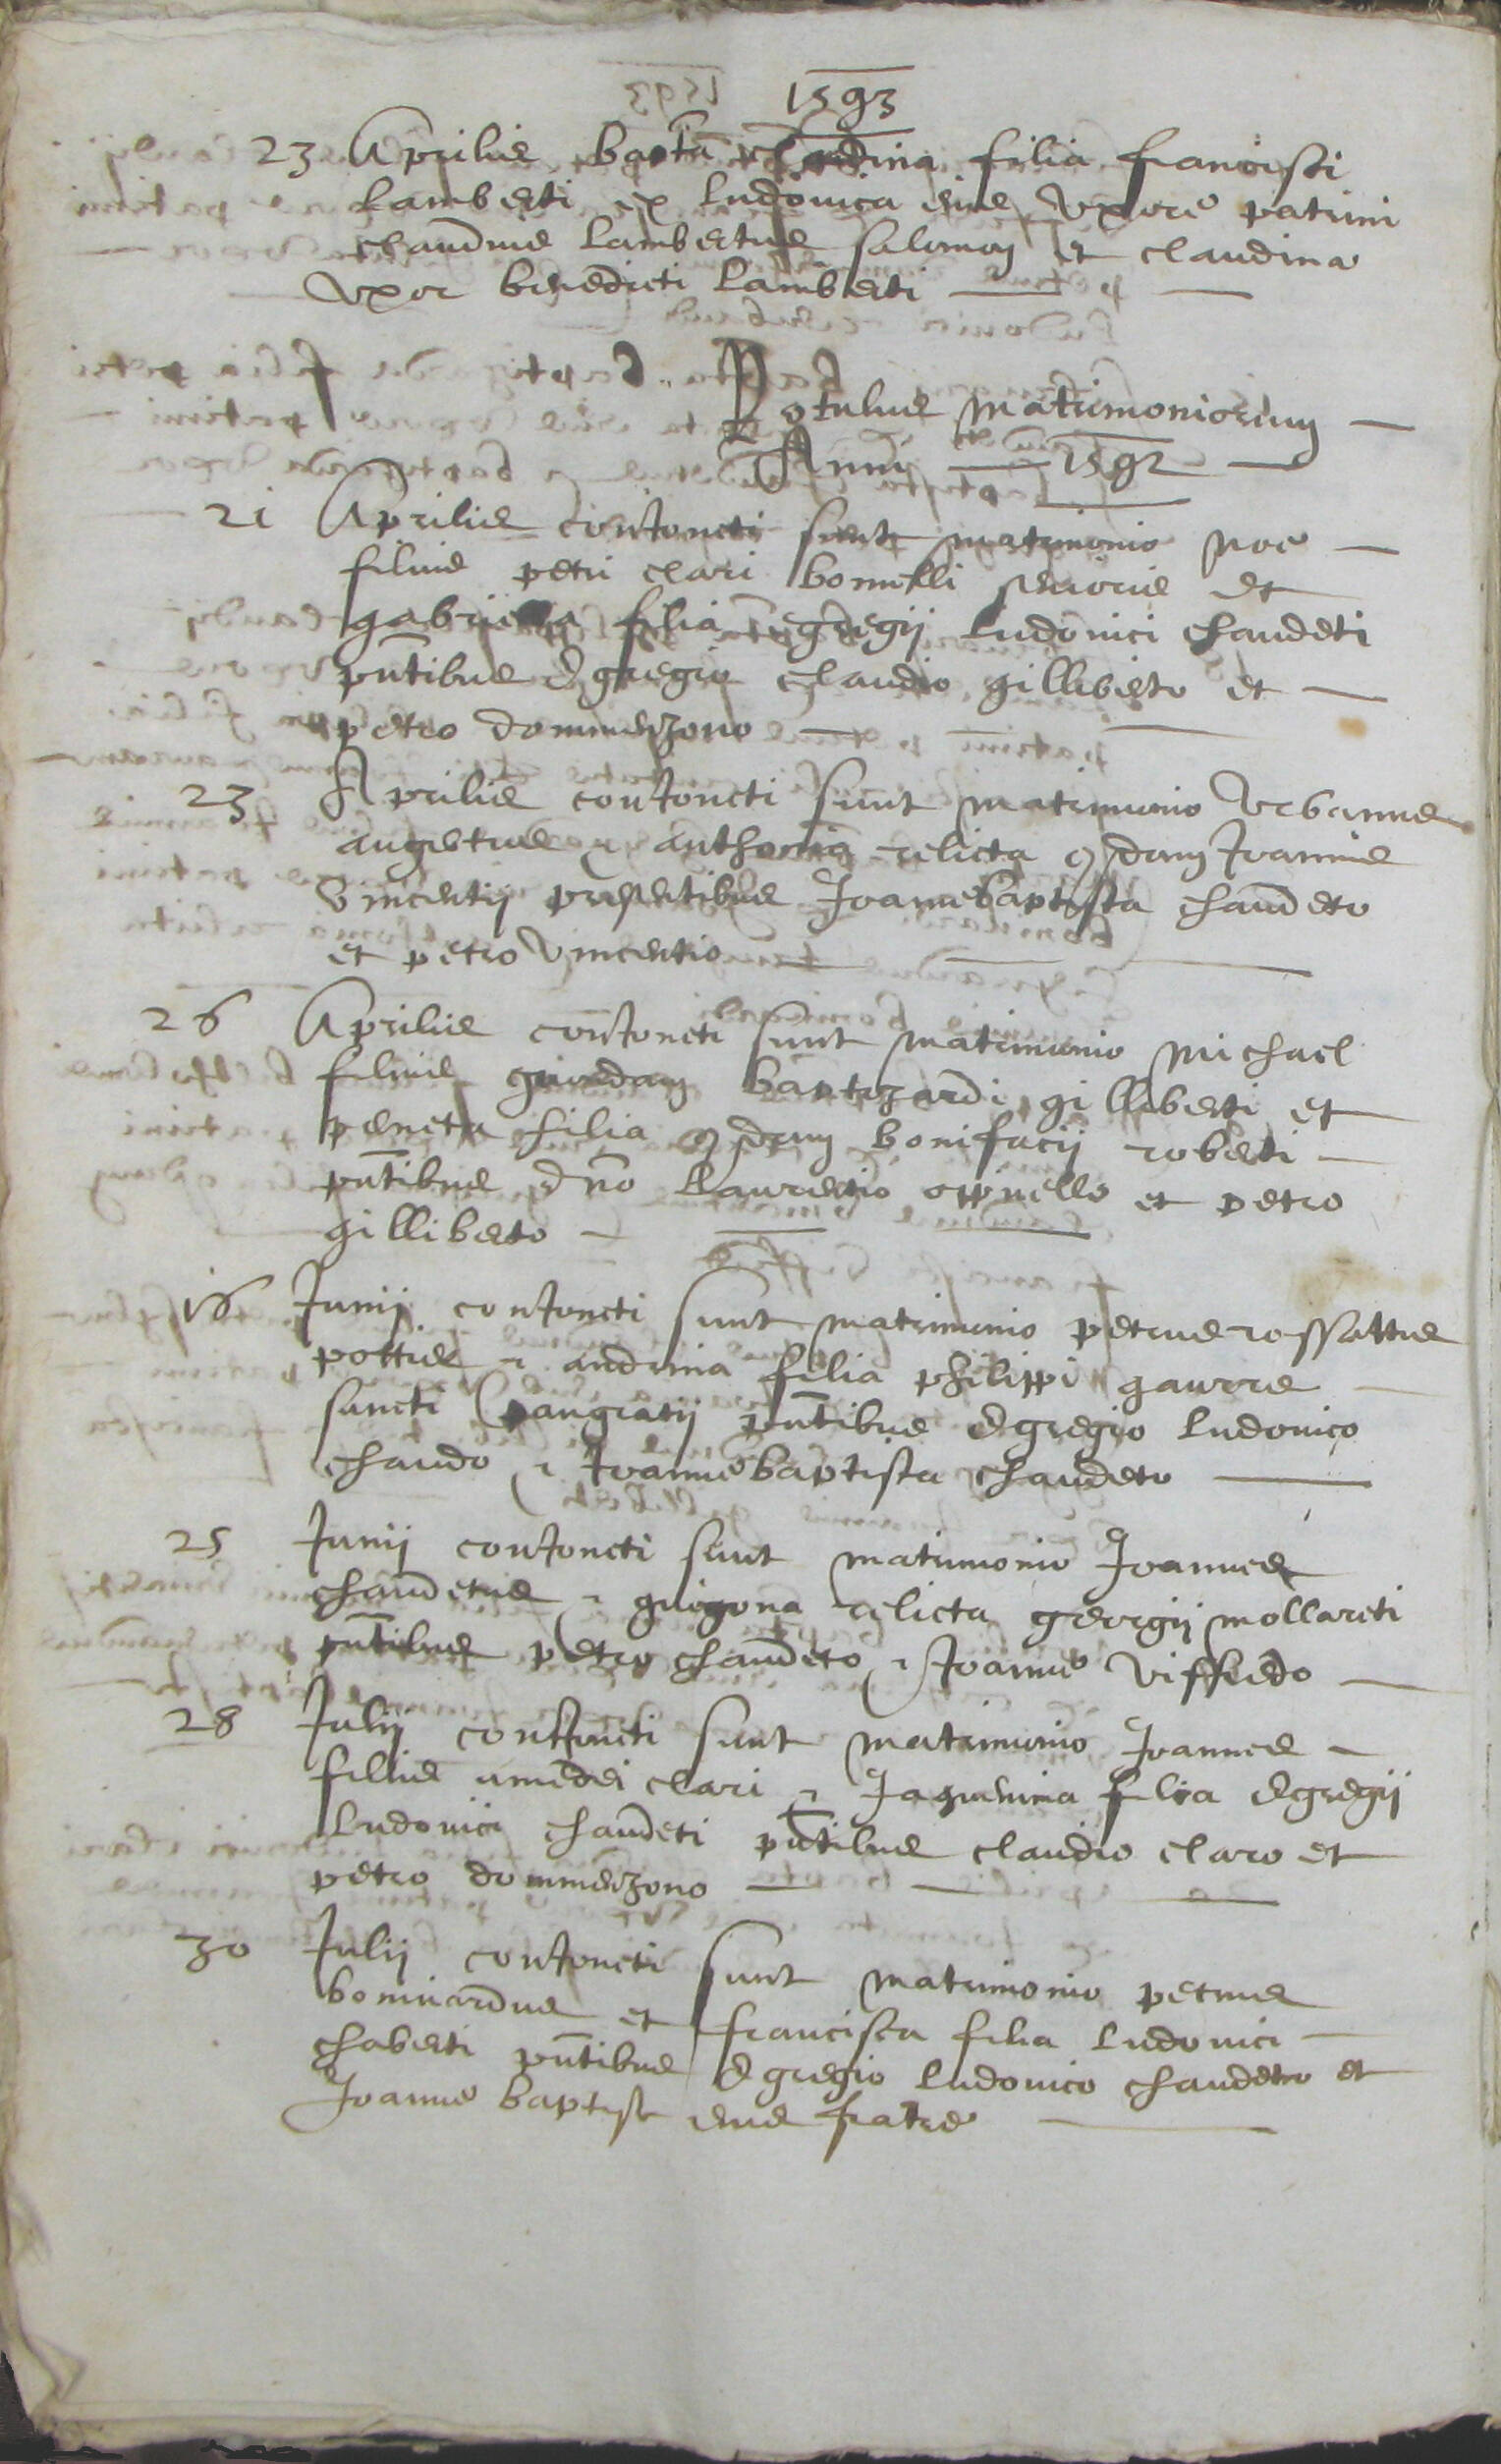 1593
23 Aprilis bapta claudina filia francisci
Lamberti ex ludovica eius uxore patrini
claudius lambertus salomon et claudina
uxor benedicti lamberti
Rotulus matrimoniorum
Anni 1592
21 Aprilis conioncti sunt matrimonio noe
filius petri clari bonielli senioris et
gabriella filia egregii ludovici chaudeti
pntibus Egregio claudio gilliberto et
petro dommenzono
23 Aprilis conioncti sunt matrimonio Urbanus
augertus & anthonia relicta qdam Joannis
vincentii presentibus Joannebaptista chaudeto
et petro vincentio
26 Aprilis conioncti sunt matrimonio Michael
filius quondam bautezardi gilliberti et
peneta filia qdam bonifacii roberti
pntibus dno Laurentio oppnello et petro
gilliberto
16 Junii conioncti sunt matrimonio petrus rossattus
pottus & andrina filia philippi gaurre
sancti pangratii pntibus Egregio ludovico
chaudo & Joannebaptista chaudeto
25 Junii conioncti sunt matrimonio Joannes
chaudetus & guigona relicta georgii mollareti
pntibus petro chaudeto & Joanne viffredo
28 Julii conioncti sunt matrimonio Joannes
filius amedei clari & Jaquemina filia Egregii
Ludovici chaudeti pntibus claudio claro et
petro dommenzono
30 Julii conioncti sunt matrimonio petrus
bominardus et francisca filia ludovici
chaberti pntibus Egregio ludovico chaudeto et
Joanne baptista eius fratre